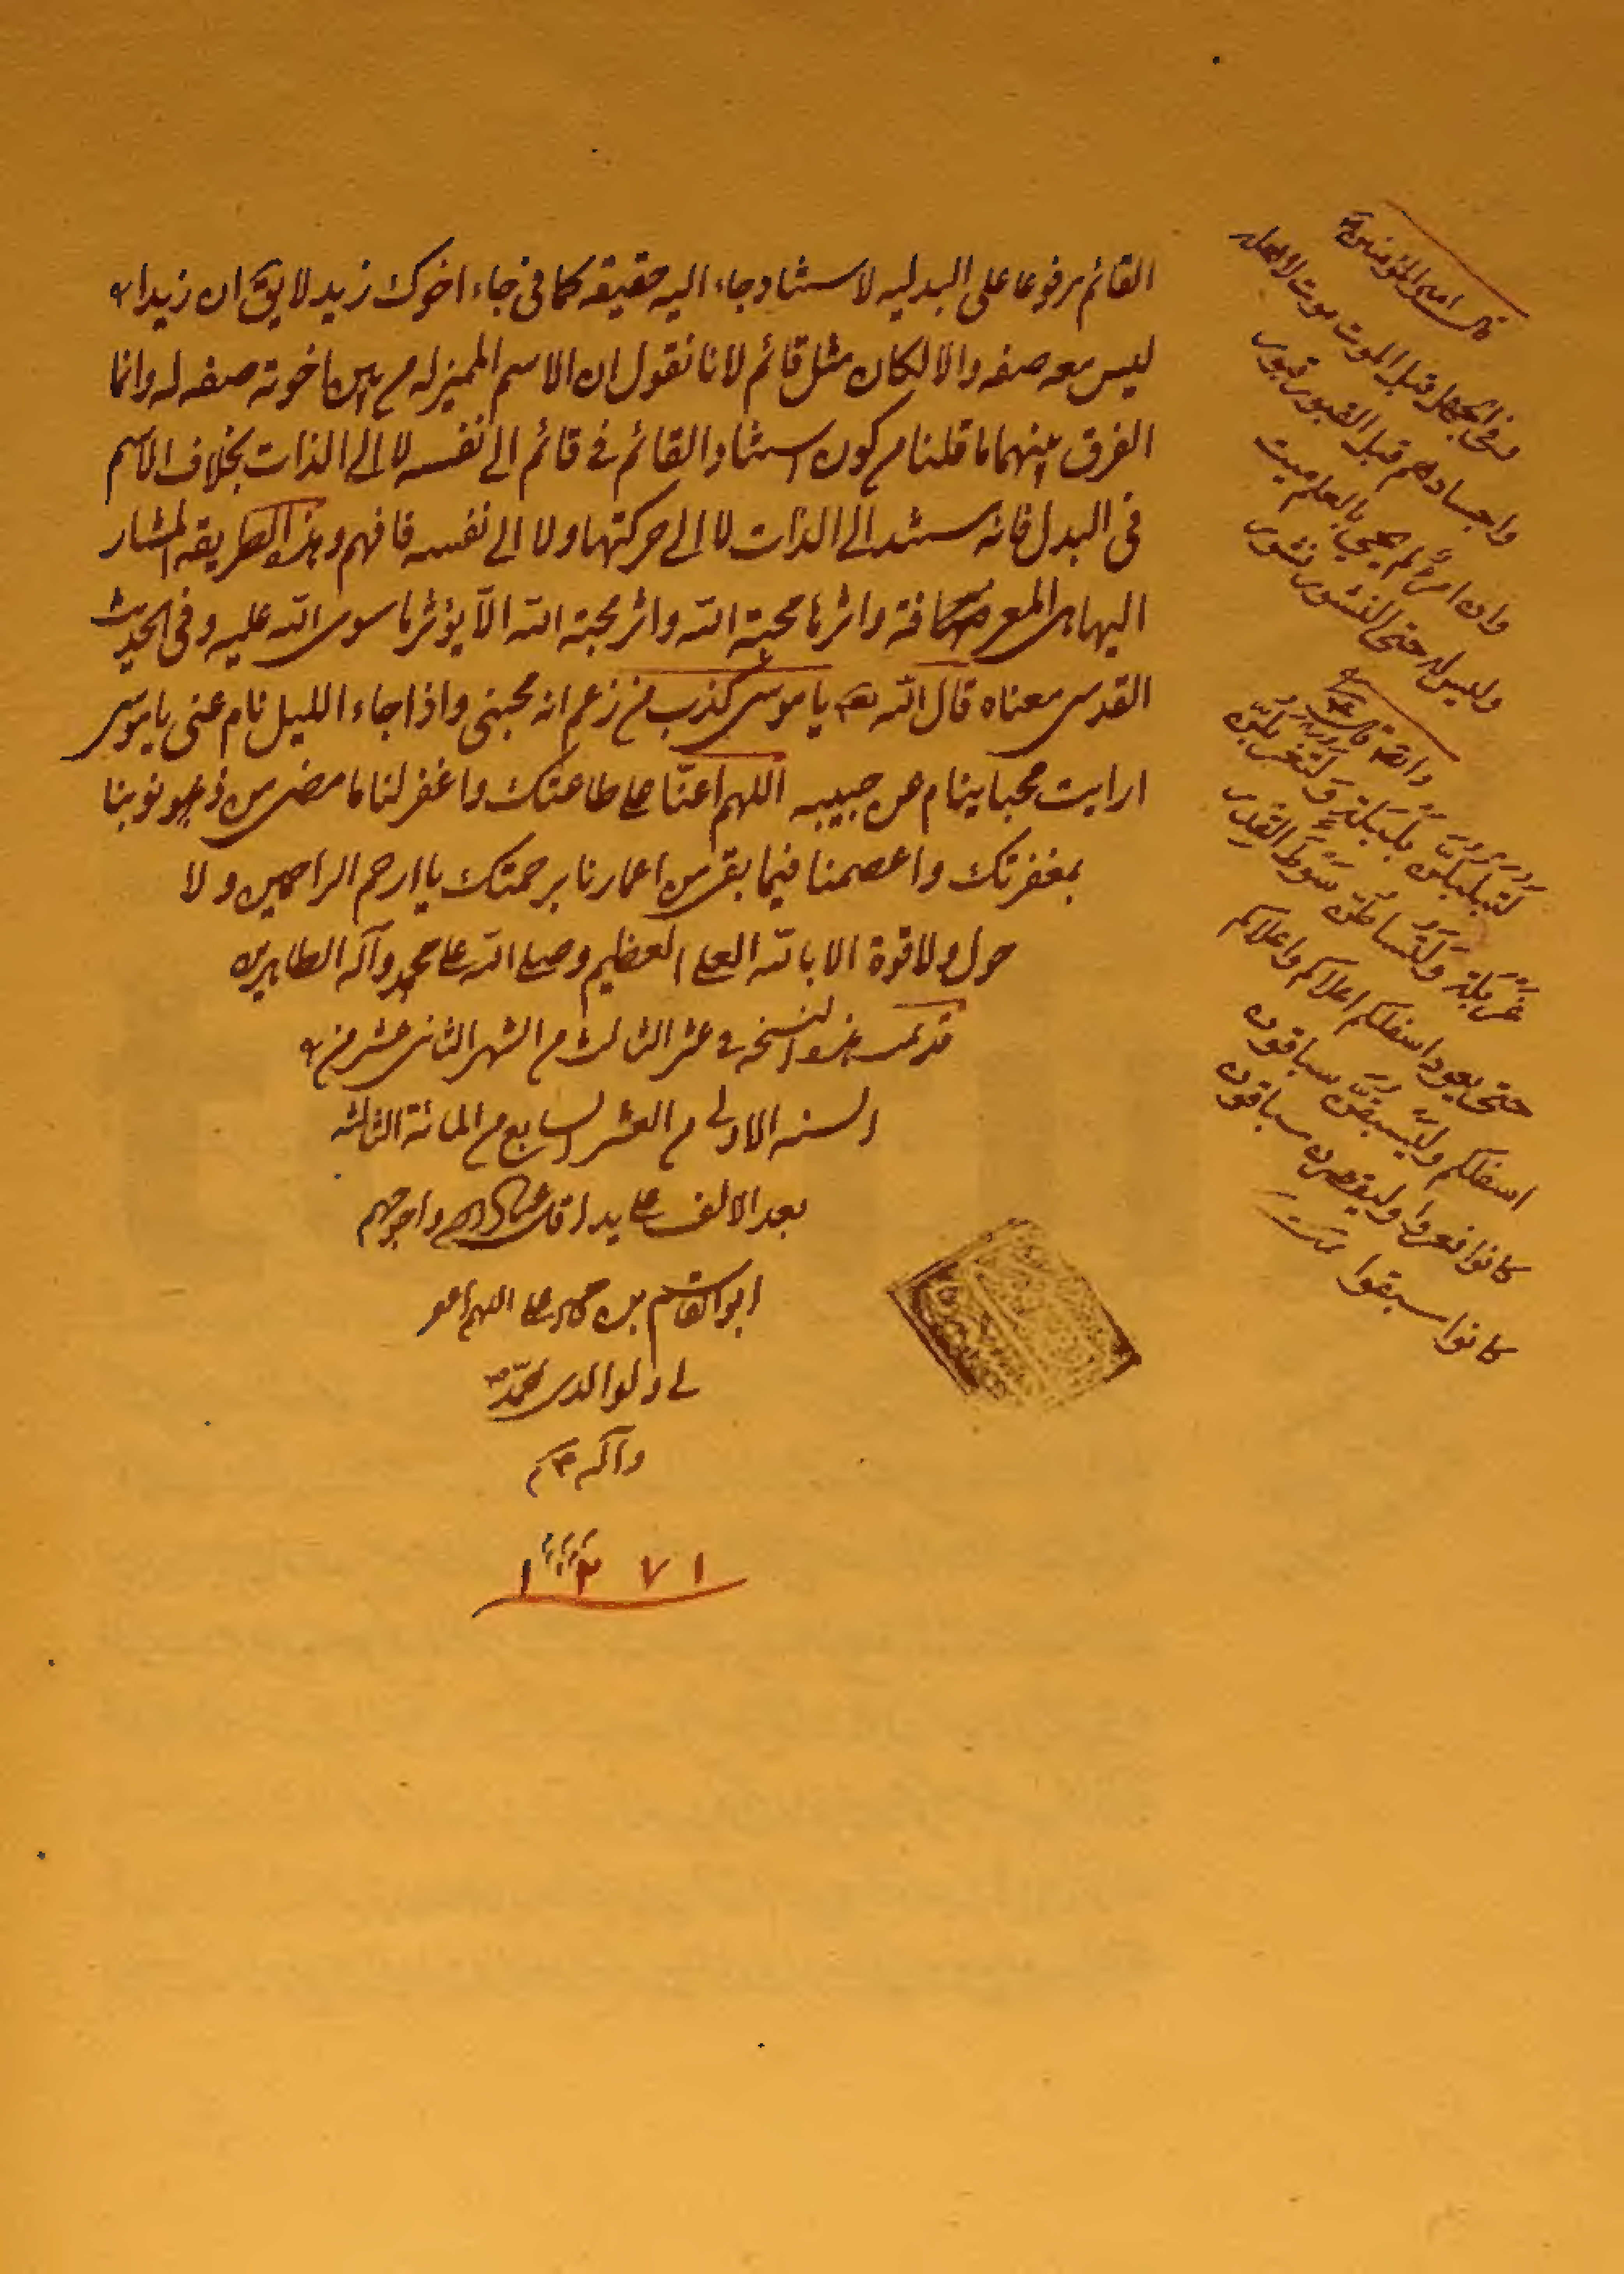 القائم مرفوعا على البدليه لاستناد جاء اليه حقيقه كما في جاء اخوك زيد لا يق ان زيدا
ليس معه صفه والا لكان مثل قائم لانا نقول ان الاسم المميز له من بين اخوته صفه له وانما
الفرق بينهما ما قلنا من كون استناد القائم في قائم الى نفسه لا الى الذات بخلاف الاسم
في البدل فانه استند الى الذات لا الى حركتها ولا الى نفسه فافهم وهذه الطريقه المشار
اليها هي المعرفة واثرها محبة الله واثر محبة الله الا يؤثر ما سوى الله عليه وفي الحديث
القدسي معناه قال الله تع يا موسى كذب من زعم انه محبني واذا جاء الليل نام عني يا موسى
ارايت محبا ينام عن حبيبه اللهم اعنّا على طاعتك واغفر لنا ما مضى من ذنوبنا
بمغفرتك واعصمنا فيما بقي من اعمارنا برحمتك يا ارحم الراحمين ولا
حول ولا قوة الا بالله العلي العظيم وصلى الله على محمد وآله الطاهرين
قد تمت هذه النسخه في عشر الثالث من الشهر الثاني عشر من
السنه الاولى من العشر السابع من المائة الثالثه
بعد الالف على يد اقل واحوجهم
ابو القاسم بن اللهم اغفر
لي ولوالدي بمحمد
وآله
١٢٧١
قال امير المؤمنين
وفي الجهل قبل الموت موت لاهله
واجسادهم قبل القبور قبور
وان امرء لم يحيي بالعلم ميت
وليس له حتى النشور نشور
وايضا قال
لتبلبلنّ بلبلة ولتغربلنّ
غربلة ولتساطنّ سوط القدر
حتى يعود اسفلكم اعلاكم واعلاكم
اسفلكم وليسبقنّ سباقون
كانوا قصروا وليقصرن سباقون
كانوا سبقوا تمت